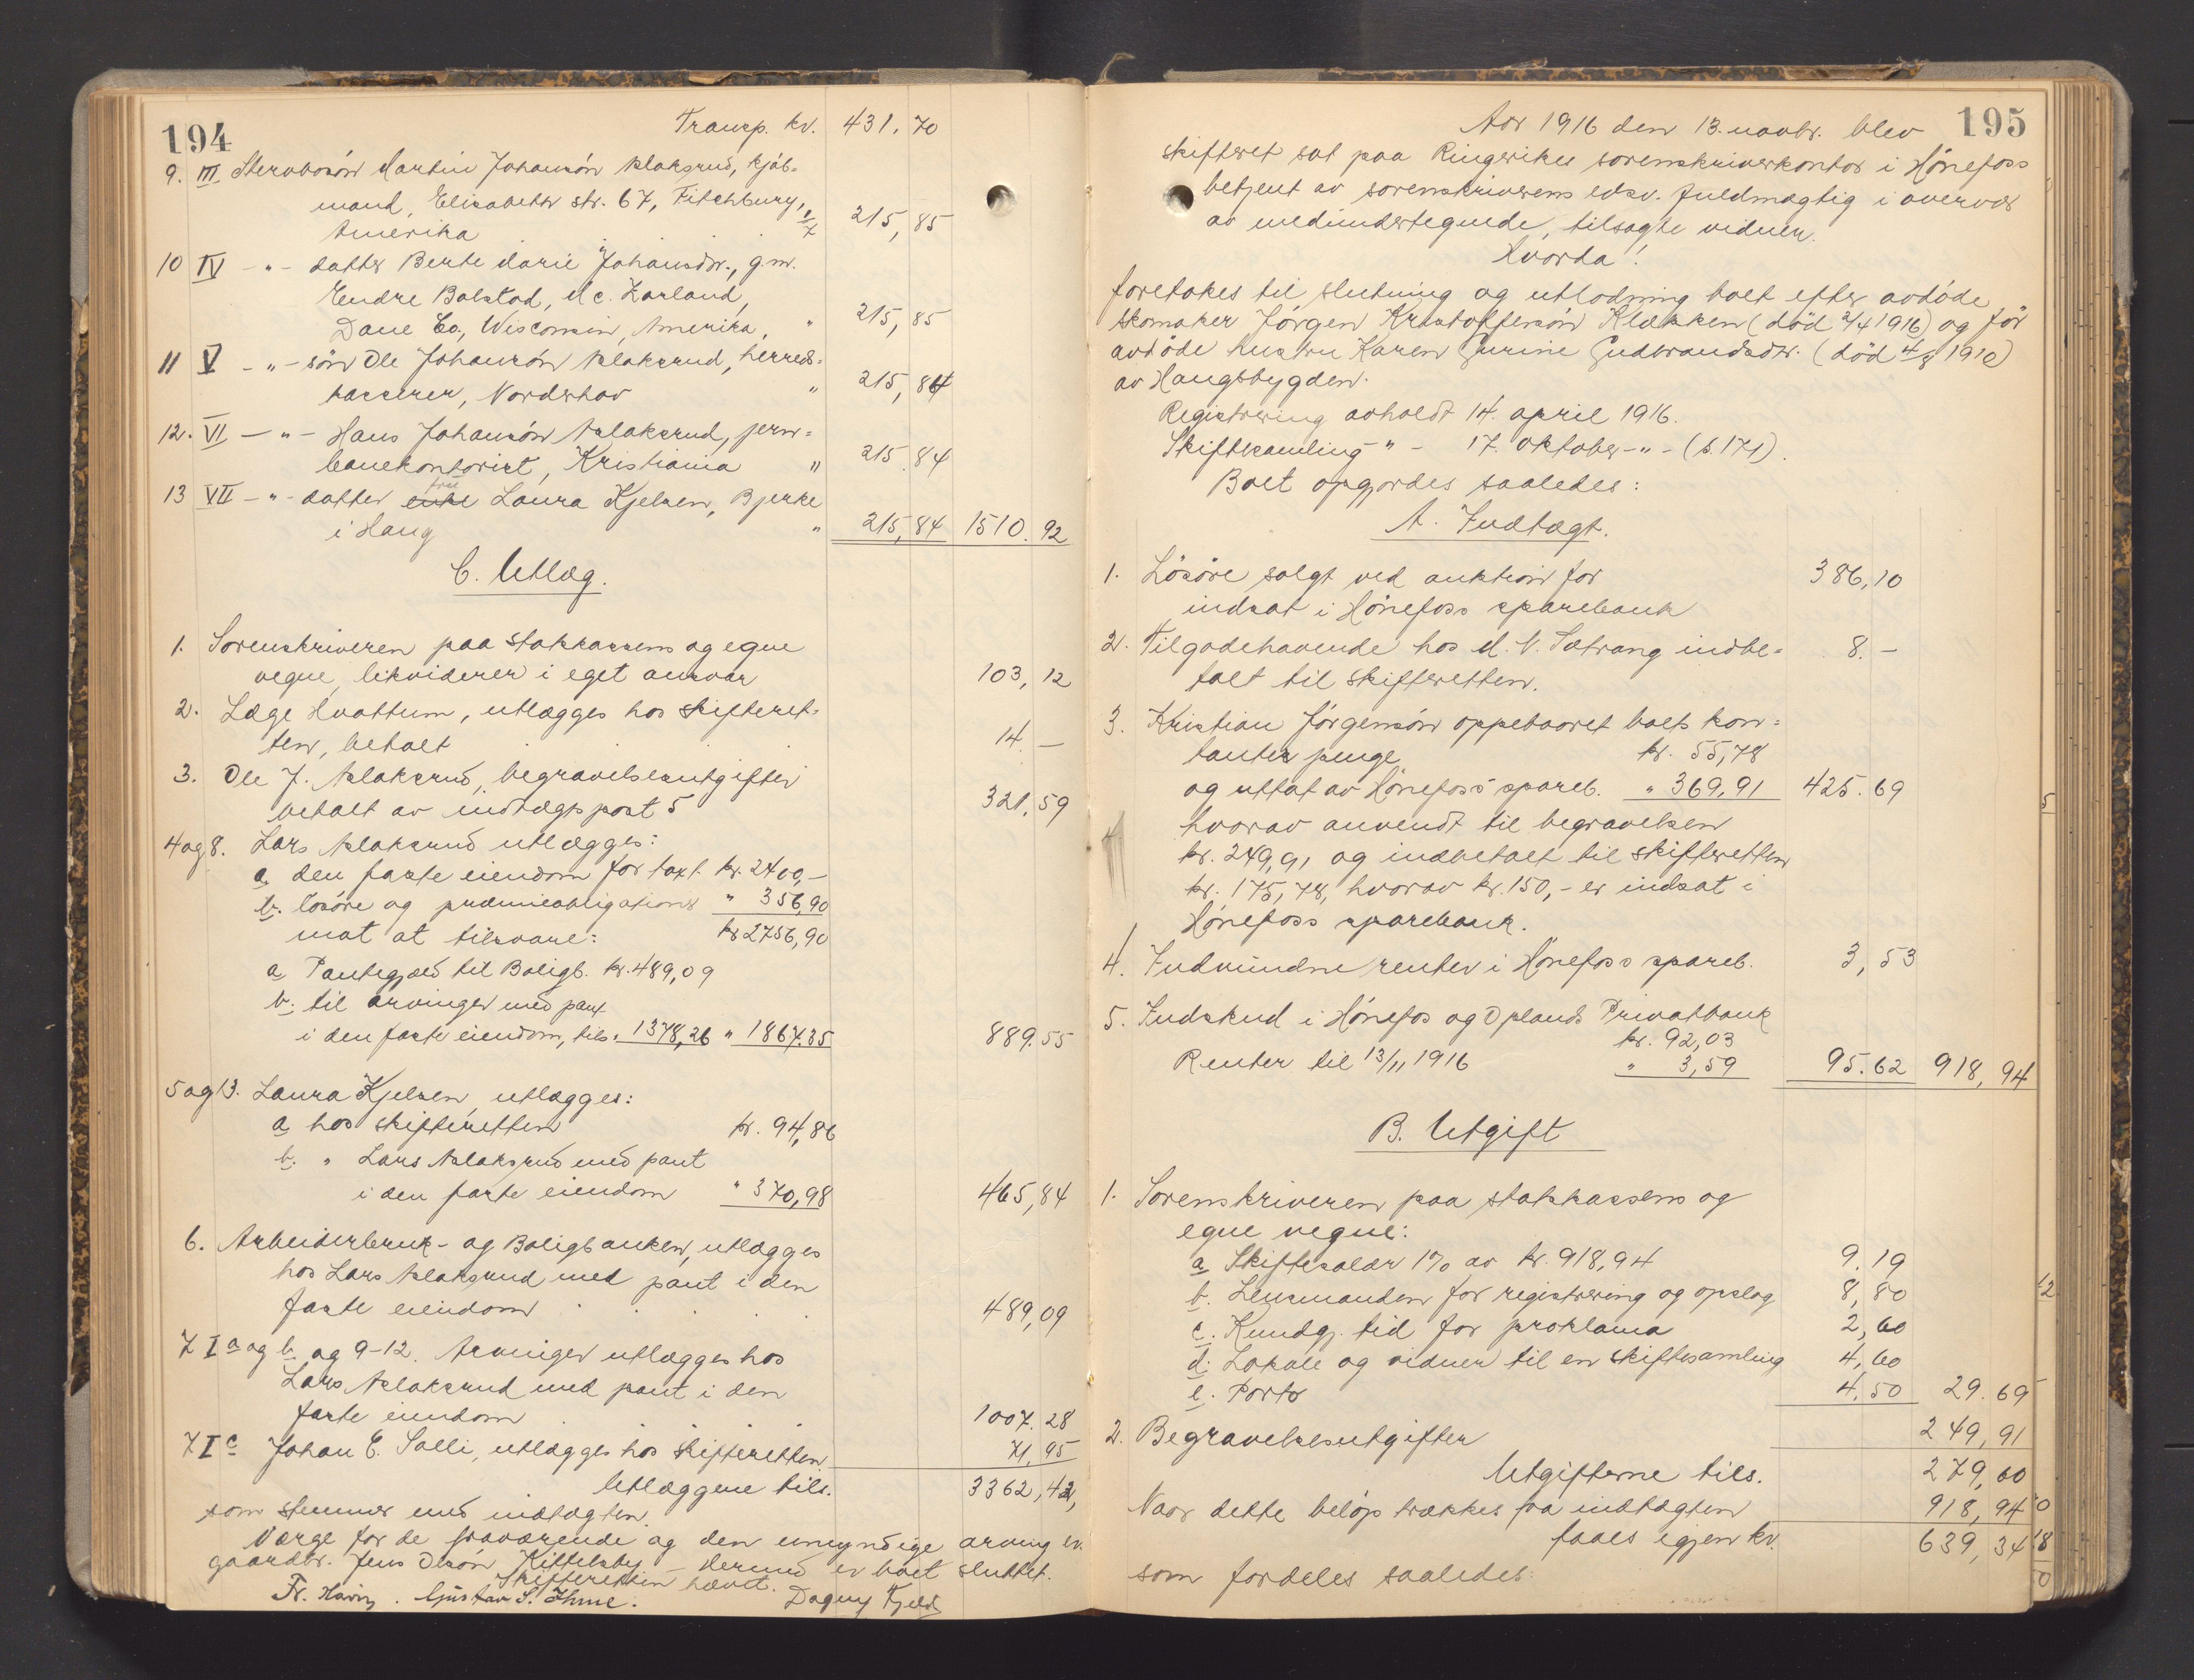 194
Transp. kr. 431,70
9. III Stervbosön Martin Johansön Aslaksrud, kjöb=
mand, Elisabeth str. 67, Fitchburg,
Amerika 1/7 215,85
10 IV -"- datter Berte Marie Johansdtr., g.m.
Endre Bolstad, Mc. Farland,
Dane Co, Wisconsin, Amerika, " 215,85
11 V -"- sön Ole Johansön Aslaksrud, herreds=
kasserer, Norderhov " 215,84
12. VI -"- Hans Johansön Aslaksrud, jern=
banekontorist, Kristiania " 215.84
13 VII -"- datter enke fru Laura Kjelsen, Bjerke
i Haug " 215,84 1510.92
C. Utlæg.
1. Sorenskriveren paa statskassens og egne
vegne, likviderer i eget ansvar 103,12
2. Læge Hvattum, utlægges hos skifteret=
ten, betalt 14.—
3. Ole J. Aslaksrud, begravelsesutgifter
betalt av indtægtspost 5 321,59
4 og 8. Lars Aslaksrud utlægges:
a den faste eiendom for takst kr. 2400,-
b. lösöre og præmieobligations " 356,90
mot at tilsvare: kr 2756,90
a Pantegjæld til Boligb. kr. 489,09
b. til arvinger med pant
i den faste eiendom, tils. " 1378,26 " 1867.35 889.55
5 og 13. Laura Kjelsen, utlægges:
a hos skifteretten kr. 94,86
b. " Lars Aslaksrud med pant
i den faste eiendom " 370,98 465,84
6. Arbeiderbruk- og Boligbanken, utlægges
hos Lars Aslaksrud med pant i den
faste eiendom 489,09
7 I a og b og 9-12. Arvinger utlægges hos
Lars Aslaksrud med pant i den
faste eiendom 1007.28
7 I c Johan E. Solli, utlægges hos skifteretten 71,95
Utlæggene tils. 3362,42,
som stemmer med indtægten.
Værge for de fraværende og den umyndige arving er
gaardbr. Jens Olsön Kittelsby — Dermed er boet sluttet.
Skifteretten hævet.
Fr. Havig. Gustav S. Ihme. Dagny Fjeld
195
Aar 1916 den 13. novbr. blev
skifteret sat paa Ringerikes sorenskriverkontor i Hönefoss
betjent av sorenskriverens edsv. fuldmægtig i overvær
av medundertegnede, tilsagte vidner.
Hvorda!
foretokes til slutning og utlodning boet efter avdöde
skomaker Jörgen Kristoffersön Klækken (död 2/4 1916) og för
avdöde hustru Karen Gurine Gudbrandsdtr. (död 4/8 1910)
av Haugsbygden.
Registrering avholdt 14. april 1916.
Skiftesamling -"- 17. oktober -"- (s. 171).
Boet opgjordes saaledes:
A. Indtægt.
1. Lösöre solgt ved auktion for 386,10
indsat i Hönefoss sparebank
2. Tilgodehavende hos M. N. Sætrang indbe= 8.-
talt til skifteretten.
3. Kristian Jörgensön oppebaaret boets kon=
tanter penge kr. 55,78
og uttat av Hönefoss spareb. " 369,91 425.69
hvorav anvendt til begravelsen
kr. 249,91 og indbetalt til skifteretten
kr. 175,78, hvorav kr. 150,- er indsat i
Hönefoss sparebank.
4. Indvundne renter i Hönefoss spareb. 3,53
5. Indskud i Hönefos og Oplands Privatbank
kr. 92,03
Renter til 13/11 1916 " 3,59 95.62 918,94
B. Utgift
1. Sorenskriveren paa statskassens og
egne vegne:
a Skiftesalær 1% av kr. 918,94 9.19
b. Lensmanden for registrering og opslag 8,80
c. Kundgj. tid. for proklama 2,60
d. Lokale og vidner til en skiftesamling 4,60
e. Porto 4.50 29.69
2. Begravelsesutgifter 249,91
Utgifterne tils. 279,60
Naar dette belöp trækkes fra indtægten 918,94
faaes igjen kr. 639,34
som fordeles saaledes: